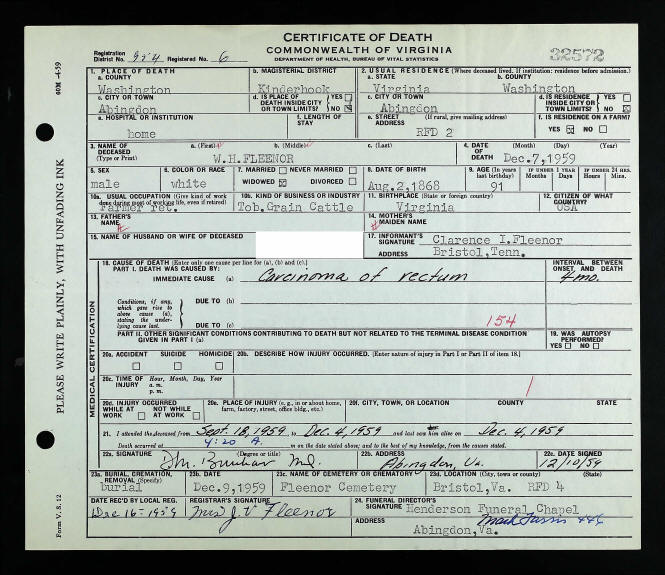 CERTIFICATE OF DEATH
COMMONWEALTH OF VIRGINIA
DEPARTMENT OF HEALTH, BUREAU OF VITAL STATISTICS
Registration District No. 954 Registered No. 6
32572
60M -4-59
1. PLACE OF DEATH
a. COUNTY
Washington
b. MAGISTERIAL DISTRICT
Kinderhook
2. USUAL RESIDENCE (Where deceased lived. If institution: residence before admission.)
a. STATE
Virginia
b. COUNTY
Washington
c. CITY OR TOWN
Abingdon
d. IS PLACE OF DEATH INSIDE CITY OR TOWN LIMITS?
YES
NO
c. CITY OR TOWN
Abingdon
d. IS RESIDENCE INSIDE CITY OR TOWN LIMITS?
YES
NO
e. HOSPITAL OR INSTITUTION
home
f. LENGTH OF STAY
e. STREET ADDRESS
(If rural, give mailing address)
RFD 2
f. IS RESIDENCE ON A FARM?
YES NO
3. NAME OF DECEASED
(Type or Print)
a. (First) b. (Middle) c. (Last)
W.H.FLEENOR
4. DATE OF DEATH
(Month) (Day) (Year)
Dec.7,1959
5. SEX
male
6. COLOR OR RACE
white
7. MARRIED NEVER MARRIED
WIDOWED DIVORCED
8. DATE OF BIRTH
Aug.2,1868
9. AGE (In years last birthday)
91
IF UNDER 1 YEAR
Months Days
IF UNDER 24 HRS.
Hours Mins.
10a. USUAL OCCUPATION (Give kind of work done during most of working life, even if retired)
Farmer ret.
10b. KIND OF BUSINESS OR INDUSTRY
Tob.Grain Cattle
11. BIRTHPLACE (State or foreign country)
Virginia
12. CITIZEN OF WHAT COUNTRY?
USA
13. FATHER'S NAME
14. MOTHER'S MAIDEN NAME
15. NAME OF HUSBAND OR WIFE OF DECEASED
17. INFORMANT'S SIGNATURE Clarence I.Fleenor
ADDRESS Bristol,Tenn.
18. CAUSE OF DEATH (Enter only one cause per line for (a), (b) and (c).)
PART I. DEATH WAS CAUSED BY:
IMMEDIATE CAUSE (a) Carcinoma of rectum
INTERVAL BETWEEN ONSET AND DEATH
4 mo.
Conditions, if any, which gave rise to above cause (a), stating the underlying cause last.
DUE TO (b)
DUE TO (c)
154
PART II. OTHER SIGNIFICANT CONDITIONS CONTRIBUTING TO DEATH BUT NOT RELATED TO THE TERMINAL DISEASE CONDITION GIVEN IN PART I (a)
19. WAS AUTOPSY PERFORMED?
YES NO
20a. ACCIDENT SUICIDE HOMICIDE
20b. DESCRIBE HOW INJURY OCCURRED. (Enter nature of injury in Part I or Part II of item 18.)
20c. TIME OF INJURY
Hour, Month, Day, Year
a. m.
p. m.
20d. INJURY OCCURRED
WHILE AT WORK NOT WHILE AT WORK
20e. PLACE OF INJURY (e.g., in or about home, farm, factory, street, office bldg., etc.)
20f. CITY, TOWN, OR LOCATION COUNTY STATE
21. I attended the deceased from Sept. 18, 1959 to Dec. 4, 1959 and last saw him alive on Dec. 4, 1959
Death occurred at 4:20 A. m on the date stated above; and to the best of my knowledge, from the causes stated.
22a. SIGNATURE (Degree or title)
M.D.
22b. ADDRESS
Abingdon, Va.
22c. DATE SIGNED
12/10/59
23a. BURIAL, CREMATION, REMOVAL (Specify)
burial
23b. DATE
Dec.9,1959
23c. NAME OF CEMETERY OR CREMATORY
Fleenor Cemetery
23d. LOCATION (City, town or county) (State)
Bristol,Va. RFD 4
DATE REC'D BY LOCAL REG.
Dec 16-1959
REGISTRAR'S SIGNATURE
Mrs J. V Fleenor
24. FUNERAL DIRECTOR'S SIGNATURE Henderson Funeral Chapel
ADDRESS
Abingdon,Va.
MEDICAL CERTIFICATION
PLEASE WRITE PLAINLY, WITH UNFADING INK
Form V. S. 12